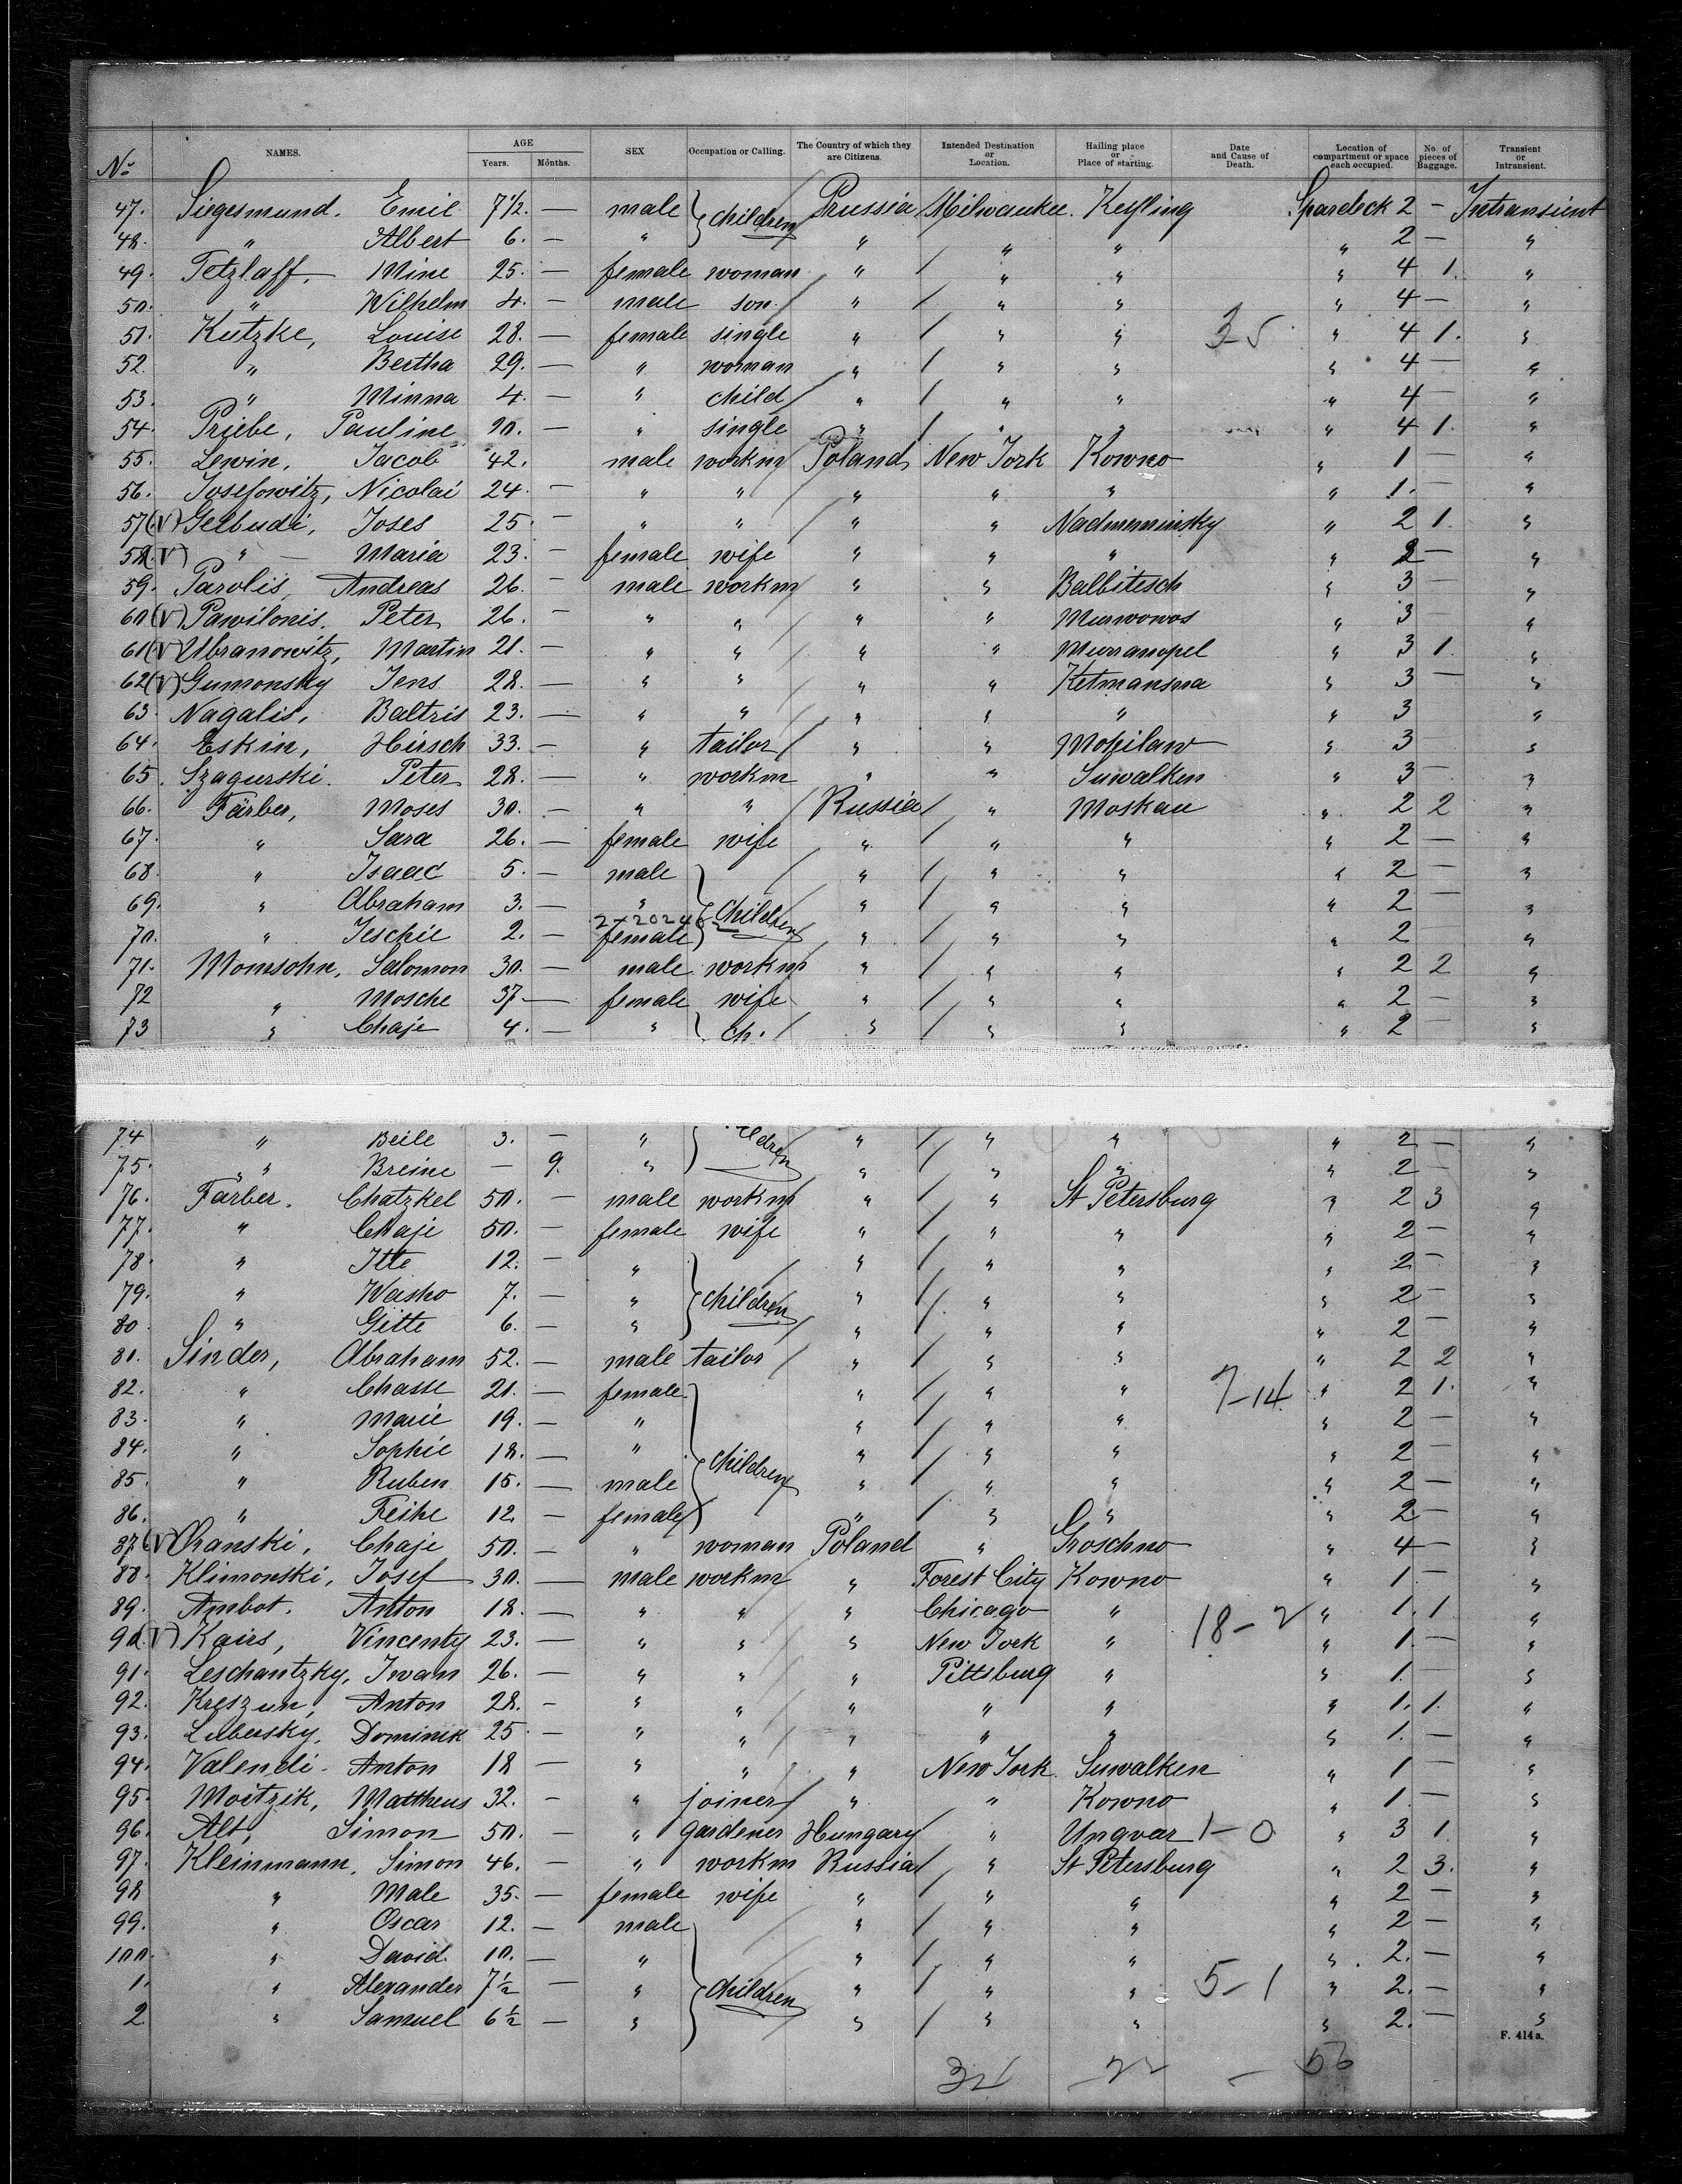 No NAMES. AGE Years. Months. SEX Occupation or Calling. The Country of which they are Citizens. Intended Destination or Location. Hailing place or Place of starting. Date and Cause of Death. Location of compartment or space each occupied. No. of pieces of Baggage. Transient or Intransient.
47. Siegesmund. Emil 7 1/2. — male children Prussia Milwaukee. Spardeck 2 — Intransient
48. " Albert 6. — " " " " " 2 — "
49. Tetzlaff, Mine 25. — female woman " " " " 4 1. "
50. " Wilhelm 4. — male son " " " " 4 — "
51. Kutzke, Louise 28. — female single " " " 3-5 " 4 1. "
52. " Bertha 29. — " woman " " " " 4 — "
53. " Minna 4. — " child " " " " 4 — "
54. Priebe, Pauline — " single " " " " 4 1. "
55. Lewin, Jacob 42. male workm Poland New York Kowno " 1 — "
56. Josefowitz, Nicolai 24. — " " " " " " 1. — "
57 (V) Gelbudi, Joses 25. — " " " " Nadmeminsky " 2 1. "
58. (V) " — Maria 23. — female wife " " " " 2 — "
59. Parolis, Andreas 26. — male workm " " Balbitesch " 3 — "
60 (V) Pawilonis. Peter 26. — " " " " " 3 — "
61 (V) Ubranowitz, Martin 21. — " " " " " 3 1. "
62 (V) Gumonsky Jens 28. — " " " " Ketmansma " 3 — "
63. Nagalis, Baltris 23. — " " " " " " 3 "
64. Eskin, Hirsch 33. — " tailor " " Mohilaw " 3 — "
65. Szagurski. Peter 28. — " workm " " Suwalken " 3 — "
66. Färber, Moses 30. — " " Russia " Moskau " 2 2 "
67. " Sara 26. — female wife " " " " 2 — "
68. " Isaac 5. — male " " " " 2 — "
69. " Abraham 3. — " children " " " " 2 — "
70. " Jeschie 2. — female " " " " 2 — "
71. Momsohn, Salomon 30. — male workm " " " " 2 2 "
72 " Mosche 37 — female wife " " " " 2 — "
73 " Chaje 4. — " ch. " " " " 2 — "
74 " Beile 3. — " ldren " " " " 2 — "
75. " Breine — 9. " " " " " 2 — "
76. Färber. Chatzkel 50. — male workm " " St Petersburg " 2 3 "
77. " Chaje 50. — female wife " " " " 2 — "
78. " Itte 12. — " " " " " 2 — "
79. " Wasko 7. — " children " " " " 2 — "
80. " Gitte 6. — " " " " " 2 — "
81. Sinder, Abraham 52. — male tailor " " " " 2 2 "
82. " Chasse 21. — female " " " 7-14 " 2 1. "
83. " Marie 19. — " " " " " 2 — "
84. " Sophie 18. — " children " " " " 2 — "
85. " Ruben 15. — male " " " " 2 — "
86. " 12 — female " " " " 2 — "
87 (V) Chaje 50. — " woman Poland " Groschno " 4 — "
88. Klimonski, Josef 30. — male workm " Forest City Kowno " 1. — "
89. Ambot. Anton 18. — " " " Chicago " " 1. 1 "
90. (V) Kairs, Vincenty 23. — " " " New York " 18-2 " 1. — "
91. Leschantzky, Iwan 26. — " " " Pittsburg " " 1. — "
92. Kreszun, Anton 28. — " " " " " " 1. 1. "
93. Lubersky, Dominik 25 — " " " " " " 1. — "
94. Valendi. Anton 18 — " " " New York Suwalken " 1 — "
95. Moitzik, Mattheus 32. — " joiner " " Kowno " 1. — "
96. Alt, Simon 50. — " gardener Hungary " Ungvar 1-0 " 3 1. "
97. Kleinmann, Simon 46. — " workm Russia " St Petersburg " 2 3. "
98 " Male 35. — female wife " " " " 2 — "
99. " Oscar 12. — male " " " " 2 — "
100. " David. 10. — " " " " " 2. — "
1. " Alexander 7 1/2 — " children " " " 5-1 " 2. — "
2. " Samuel 6 1/2 — " " " " " 2. — "
F. 414a.